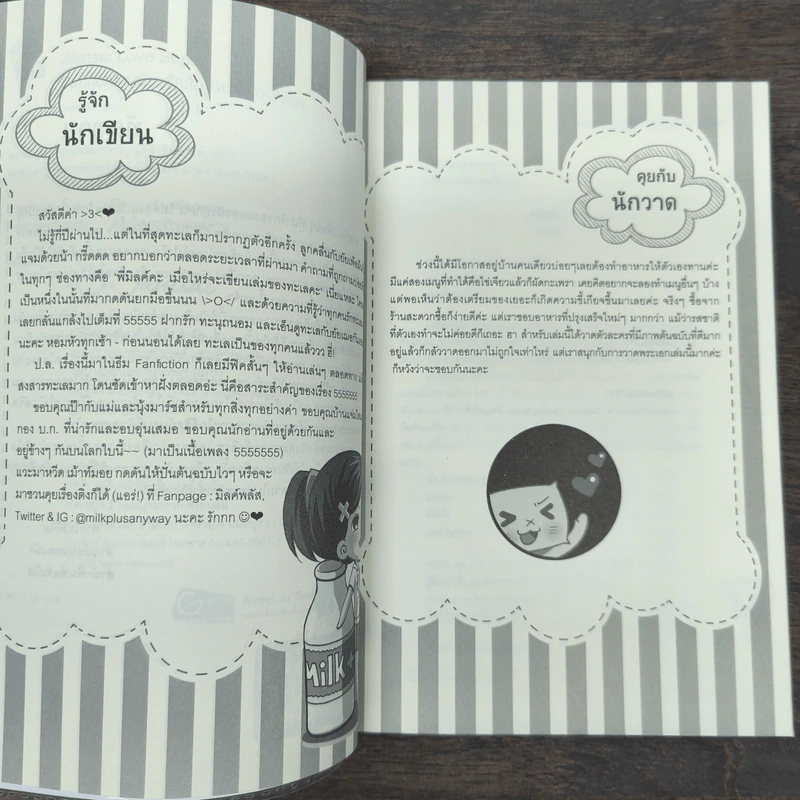 รู้จัก
นักเขียน
สวัสดีค่า >3<❤
ไม่รู้กี่ปีผ่านไป...แต่ในที่สุดทะเลก็มาปรากฏตัวอีกครั้ง ลูกคลื่นกับยัยเพื่อ
แจมด้วยน้า กรี๊ดดดด อยากบอกว่าตลอดระยะเวลาที่ผ่านมา คำถามที่ถูกถาม
ในทุกๆ ช่องทางคือ 'พี่มิลค์คะ เมื่อไหร่จะเขียนเล่มของทะเลคะ' เนี่ยแหละ
เป็นหนึ่งในนั้นที่มากดดันยกมือขึ้นนน \>O</ และด้วยความที่รู้ว่าทุกคนรัก
เลยกลั่นแกล้งไปเต็มที่ 55555 ฝากรัก ทะนุถนอม และเอ็นดูทะเลกับยัยเฌอ
นะคะ หอมหัวทุกเช้า - ก่อนนอนได้เลย ทะเลเป็นของทุกคนแล้ววว ฮี่!
ป.ล. เรื่องนี้มาในธีม Fanfiction ก็เลยมีฟิคสั้นๆ ให้อ่านเล่นๆ ตลอดทาง
สงสารทะเลมาก โดนซัดเข้าหาฝั่งตลอดอ่ะ นี่คือสาระสำคัญของเรื่อง 5555555
ขอบคุณป๊ากับแม่และนุ้งมาร์ชสำหรับทุกสิ่งทุกอย่างค่า ขอบคุณบ้านแจ่มใส
กอง บ.ก. ที่น่ารักและอบอุ่นเสมอ ขอบคุณนักอ่านที่อยู่ด้วยกันและ
อยู่ข้างๆ กันบนโลกใบนี้~~ (มาเป็นเนื้อเพลง 5555555)
แวะมาหวีด เม้าท์มอย กดดันให้ปั่นต้นฉบับไวๆ หรือจะ
มาชวนคุยเรื่องติ่งก็ได้ (แอร่!) ที่ Fanpage : มิลค์พลัส,
Twitter & IG : @milkplusanyway นะคะ รักกก ☺❤
Milk
คุยกับ
นักวาด
ช่วงนี้ได้มีโอกาสอยู่บ้านคนเดียวบ่อยๆเลยต้องทำอาหารให้ตัวเองทานค่ะ
มีแค่สองเมนูที่ทำได้คือไข่เจียวแล้วก็ผัดกะเพรา เคยคิดอยากจะลองทำเมนูอื่นๆ บ้าง
แต่พอเห็นว่าต้องเตรียมของเยอะก็เกิดความขี้เกียจขึ้นมาเลยค่ะ จริงๆ ซื้อจาก
ร้านสะดวกซื้อก็ง่ายดีค่ะ แต่เราชอบอาหารที่ปรุงเสร็จใหม่ๆ มากกว่า แม้ว่ารสชาติ
ที่ตัวเองทำจะไม่ค่อยดีก็เถอะ ฮา สำหรับเล่มนี้ได้วาดตัวละครที่มีภาพต้นฉบับที่ดีมาก
อยู่แล้วก็กลัววาดออกมาไม่ถูกใจเท่าไหร่ แต่เราสนุกกับการวาดพระเอกเล่มนี้มากค่ะ
ก็หวังว่าจะชอบกันนะคะ